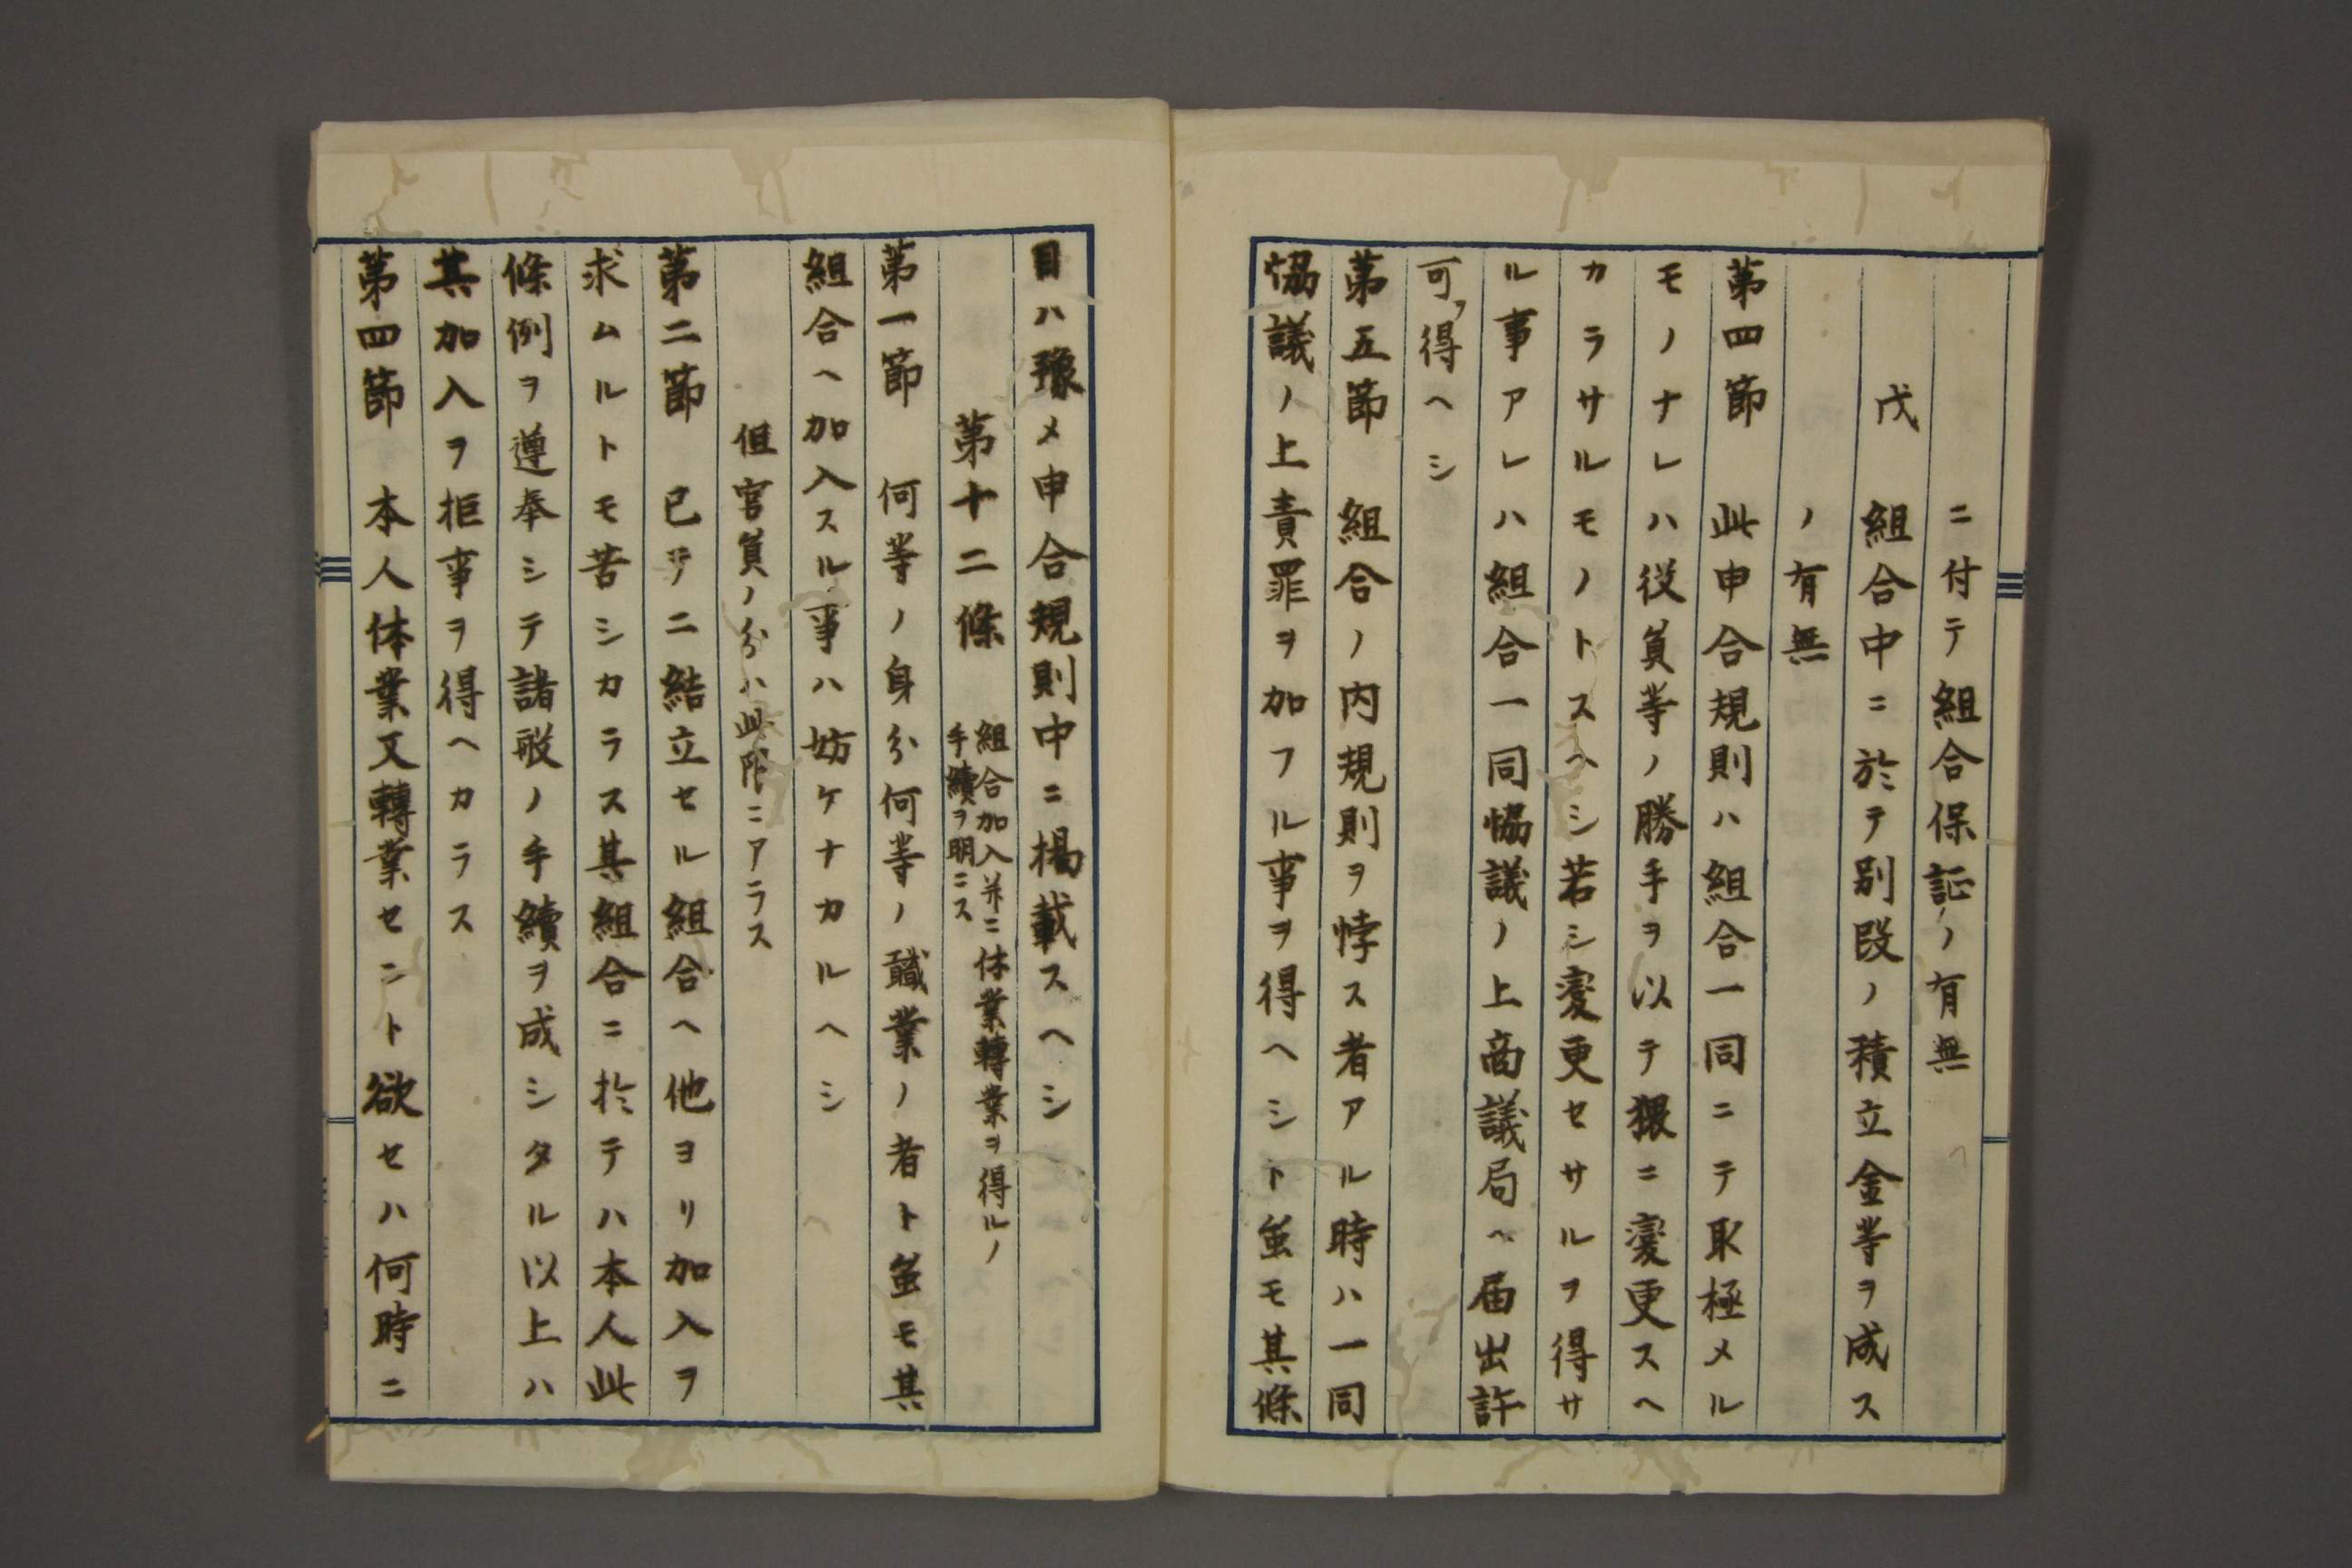 ニ付テ組合保証ノ有無
戊　組合中ニ於テ別段ノ積立金等ヲ成ス
ノ有無
第四節　此申合規則ハ組合一同ニテ取極メル
モノナレハ役員等ノ勝手ヲ以テ猥ニ変更スヘ
カラサルモノトスヘシ若シ変更セサルヲ得サ
ル事アレハ組合一同協議ノ上商議局ヘ届出許
可ヲ得ヘシ
第五節　組合ノ内規則ヲ悖ス者アル時ハ一同
協議ノ上責罪ヲ加フル事ヲ得ヘシト雖モ其條
目ハ豫メ申合規則中ニ掲載スヘシ
第十二條　組合加入并ニ休業轉業ヲ得ルノ
手續ヲ明ニス
第一節　何等ノ身分何等ノ職業ノ者ト雖モ其
組合ヘ加入スル事ハ妨ケナカルヘシ
但官員ノ分ハ此限ニアラス
第二節　已ヲニ結立セル組合ヘ他ヨリ加入ヲ
求ムルトモ苦シカラス其組合ニ於テハ本人此
條例ヲ遵奉シテ諸般ノ手續ヲ成シタル以上ハ
其加入ヲ拒事ヲ得ヘカラス
第四節　本人休業又轉業セント欲セハ何時ニ